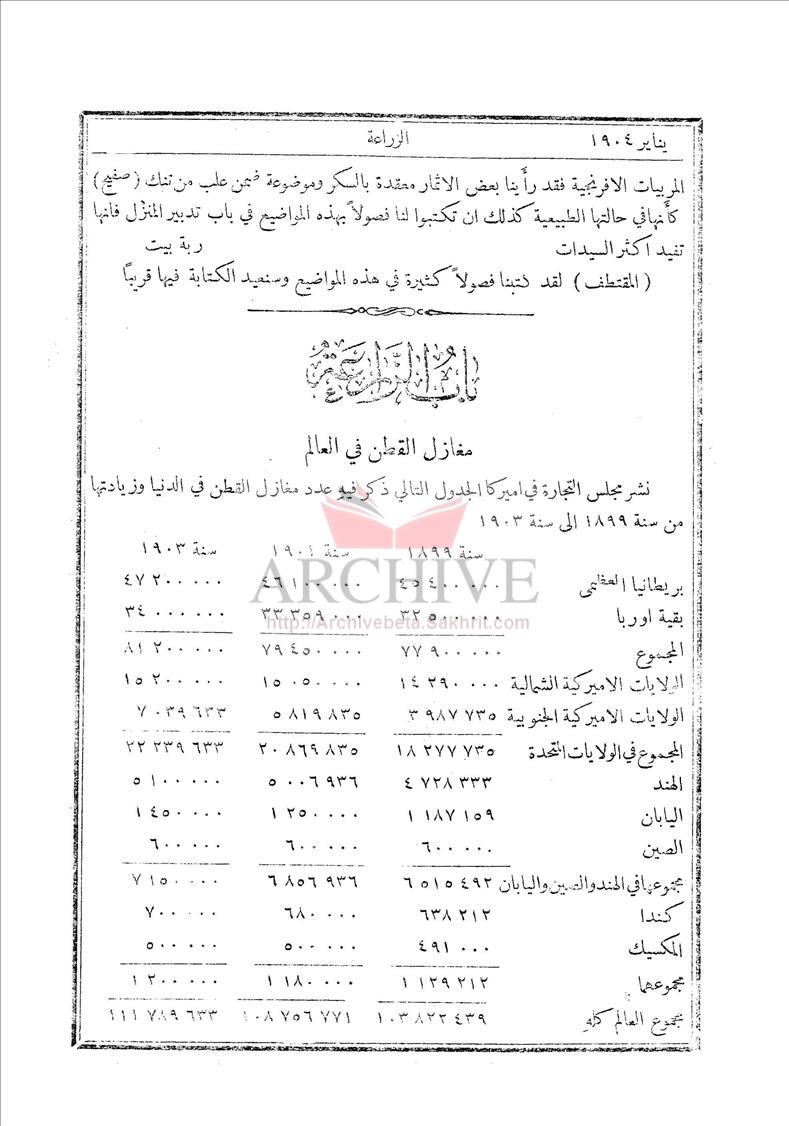 يناير ١٩٠٤ الزراعة
المربيات الافرنجية فقد رأينا بعض الاثمار معقدة بالسكر وموضوعة ضمن علب من تنك (صفيح)
كأنها في حالتها الطبيعية كذلك ان تكتبوا لنا فصولاً بهذه المواضيع في باب تدبير المنزل فانها
تفيد اكثر السيدات ربة بيت
(المقتطف) لقد كتبنا فصولاً كثيرة في هذه المواضيع وسنعيد الكتابة فيها قريباً
باب الزراعة
مغازل القطن في العالم
نشر مجلس التجارة في اميركا الجدول التالي ذكر فيه عدد مغازل القطن في الدنيا وزيادتها
من سنة ١٨٩٩ الى سنة ١٩٠٣
سنة ١٨٩٩ سنة ١٩٠١ سنة ١٩٠٣
بريطانيا العظمى ٤٥ ٤٠٠ ٠٠٠ ٤٦ ١٠٠ ٠٠٠ ٤٧ ٢٠٠ ٠٠٠
بقية اوربا ٣٢ ٥٠٠ ٠٠٠ ٣٣ ٣٥٩ ٠٠٠ ٣٤ ٠٠٠ ٠٠٠
المجموع ٧٧ ٩٠٠ ٠٠٠ ٧٩ ٤٥٠ ٠٠٠ ٨١ ٢٠٠ ٠٠٠
الولايات الاميركية الشمالية ١٤ ٢٩٠ ٠٠٠ ١٥ ٠٥٠ ٠٠٠ ١٥ ٢٠٠ ٠٠٠
الولايات الاميركية الجنوبية ٣ ٩٨٧ ٧٣٥ ٥ ٨١٩ ٨٣٥ ٧ ٠٣٩ ٦٣٣
المجموع في الولايات المتحدة ١٨ ٢٧٧ ٧٣٥ ٢٠ ٨٦٩ ٨٣٥ ٢٢ ٢٣٩ ٦٣٣
الهند ٤ ٧٢٨ ٣٣٣ ٥ ٠٠٦ ٩٣٦ ٥ ١٠٠ ٠٠٠
اليابان ١ ١٨٧ ١٥٩ ١ ٢٥٠ ٠٠٠ ١ ٤٥٠ ٠٠٠
الصين ٦٠٠ ٠٠٠ ٦٠٠ ٠٠٠ ٦٠٠ ٠٠٠
مجموعها في الهند والصين واليابان ٦ ٥١٥ ٤٩٢ ٦ ٨٥٦ ٩٣٦ ٧ ١٥٠ ٠٠٠
كندا ٦٣٨ ٢١٢ ٦٨٠ ٠٠٠ ٧٠٠ ٠٠٠
المكسيك ٤٩١ ٠٠٠ ٥٠٠ ٠٠٠ ٥٠٠ ٠٠٠
مجموعهما ١ ١٢٩ ٢١٢ ١ ١٨٠ ٠٠٠ ١ ٢٠٠ ٠٠٠
مجموع العالم كله ١٠٣ ٨٢٢ ٤٣٩ ١٠٨ ٧٥٦ ٧٧١ ١١١ ٧٨٩ ٦٣٣
ARCHIVE
http://Archivebeta.Sakhrit.com